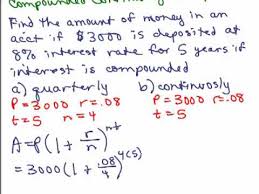 Find the amount of money in an
acct if $3000 is deposited at
8% interest rate for 5 years if
interest is compounded
a) quarterly b) continuosly
P = 3000 r = .08 P = 3000 r = .08
t = 5 n = 4 t = 5
A = P(1 + r/n)^nt
= 3000(1 + .08/4)^4(5)